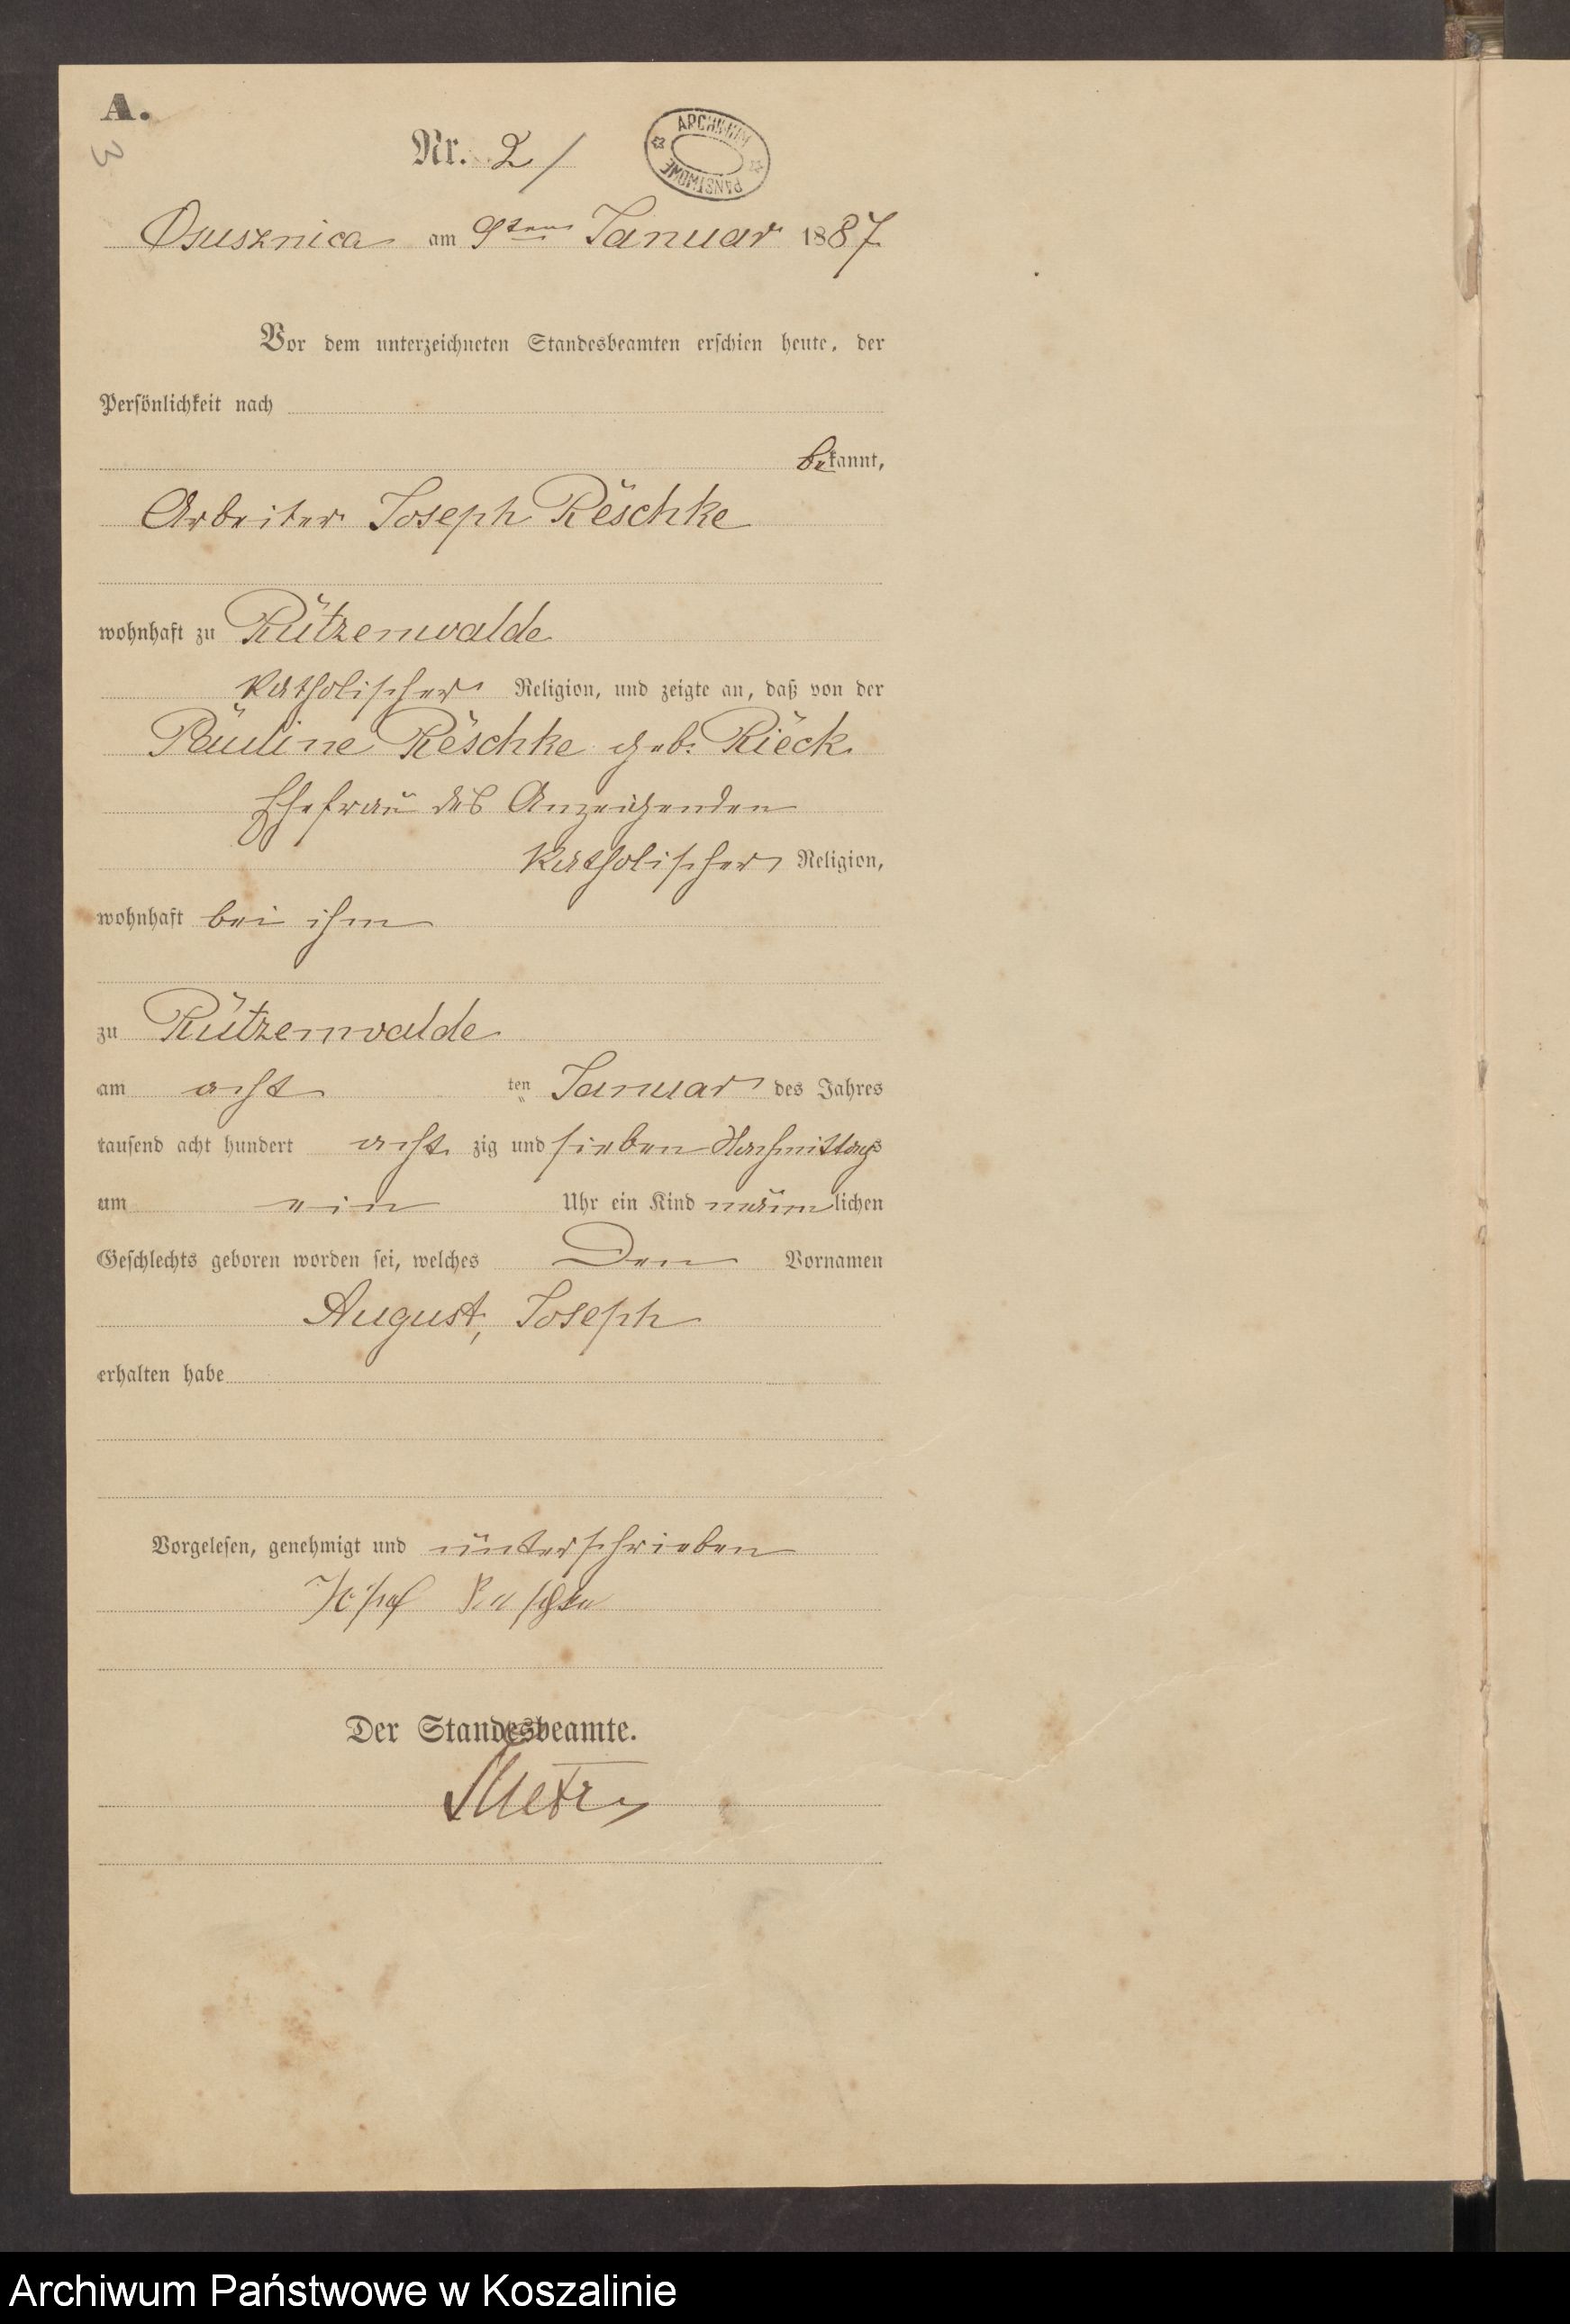 A.
3
Nr. 2 /
ARCHIWUM
PAŃSTWOWE
Osusznica am 9ten Januar 1887
Vor dem unterzeichneten Standesbeamten erschien heute, der
Persönlichkeit nach
bekannt,
Arbeiter Joseph Reschke
wohnhaft zu Rützenwalde
katholischer Religion, und zeigte an, daß von der
Pauline Reschke geb. Rieck
Ehefrau des Anzeigenden
katholischer Religion,
wohnhaft bei ihm
zu Rützenwalde
am acht ten Januar des Jahres
tausend acht hundert acht zig und sieben Nachmittags
um ein Uhr ein Kind männlichen
Geschlechts geboren worden sei, welches den Vornamen
August, Joseph
erhalten habe
Vorgelesen, genehmigt und unterschrieben
Josef Reschke
Der Standesbeamte.
Archiwum Państwowe w Koszalinie